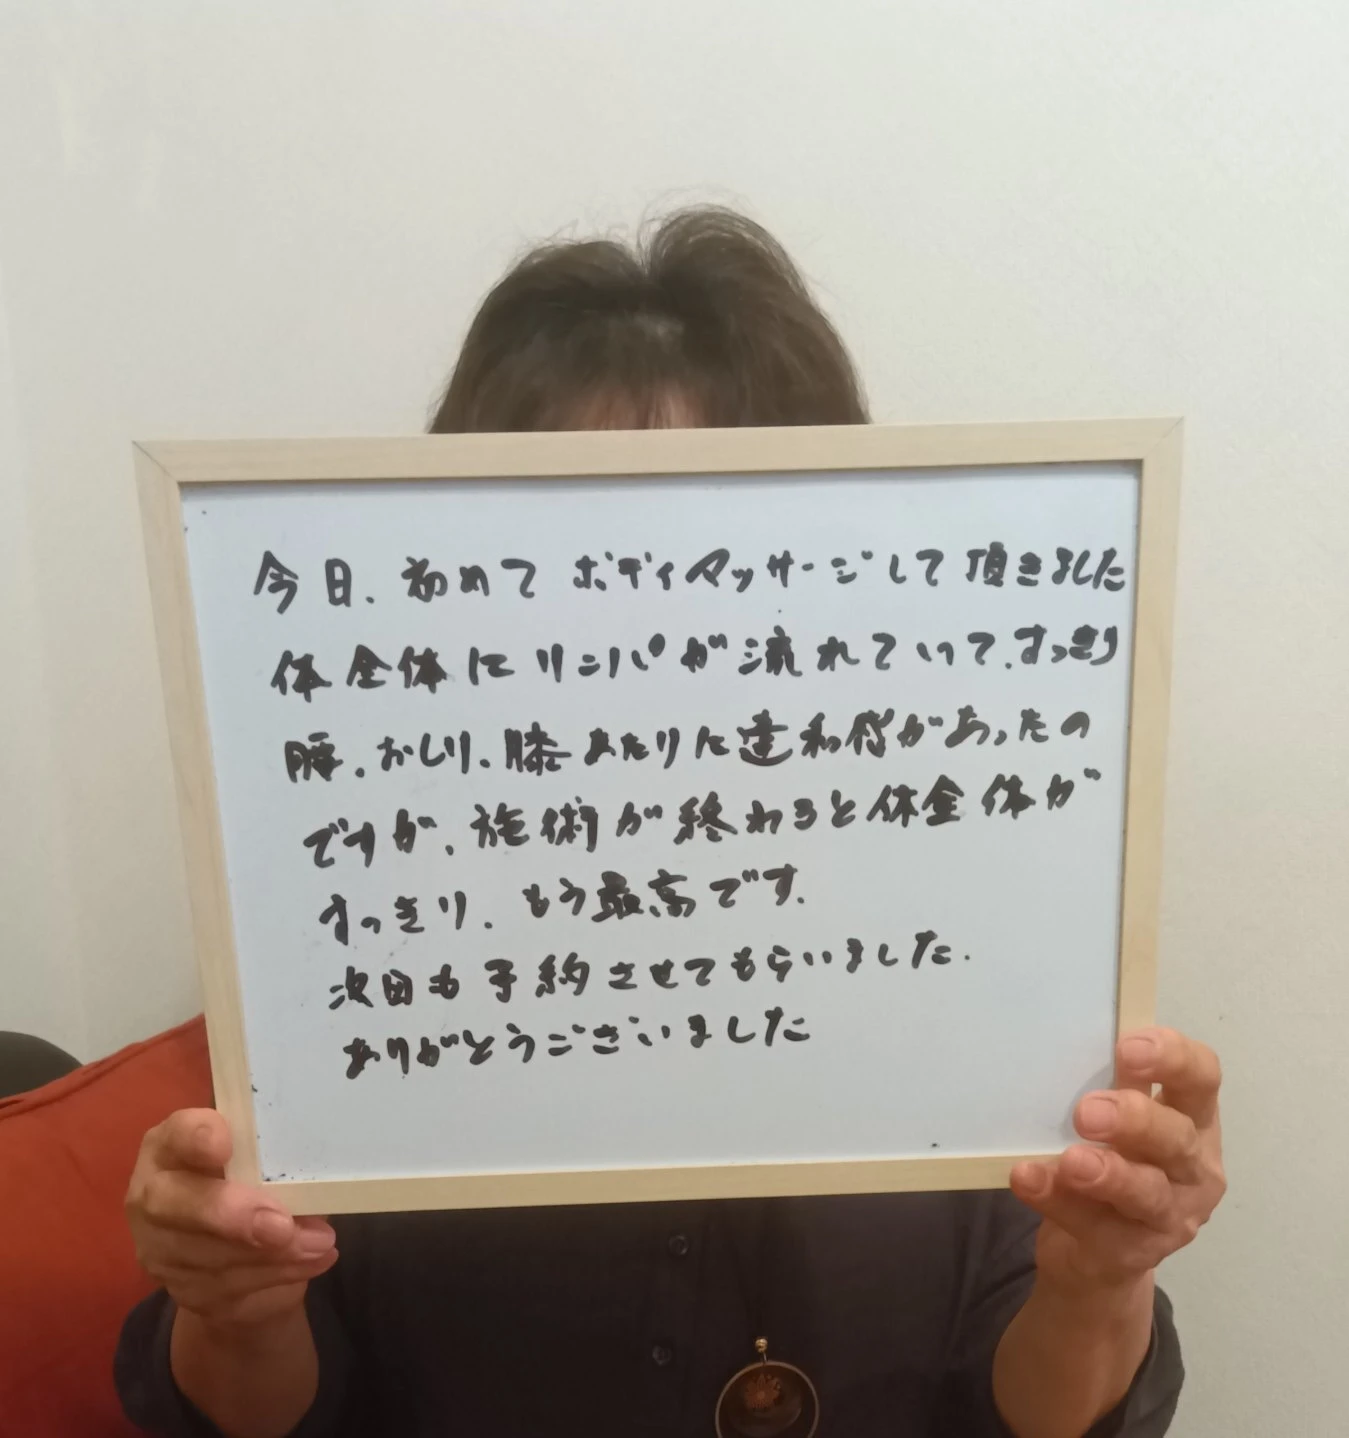 今日、初めて ボディマッサージして 頂きました
体全体に リンパが 流れていって、すっきり
腰、おしり、膝あたりに違和感があったの
ですが、施術が終わると体全体が
すっきり、もう最高です。
次回も予約させてもらいました。
ありがとうございました